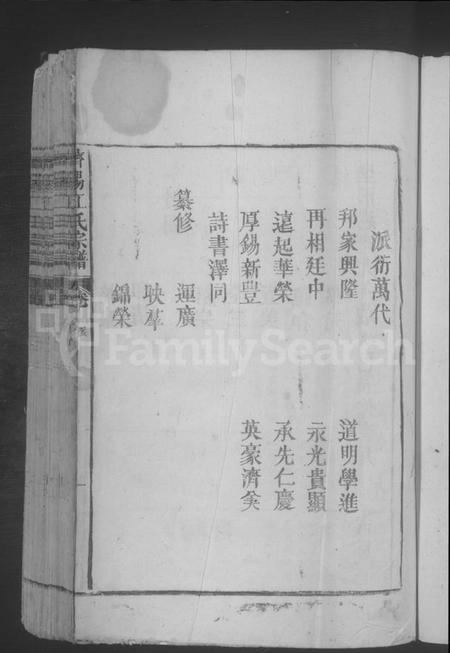 派衍萬代
邦家興隆 道明學進
再相廷中 永光貴顯
遠起華榮 承先仁慶
厚錫新豊 英豪濟美
詩書澤同
纂修 運廣
映羣
錦榮
濟陽江氏宗譜
FamilySearch